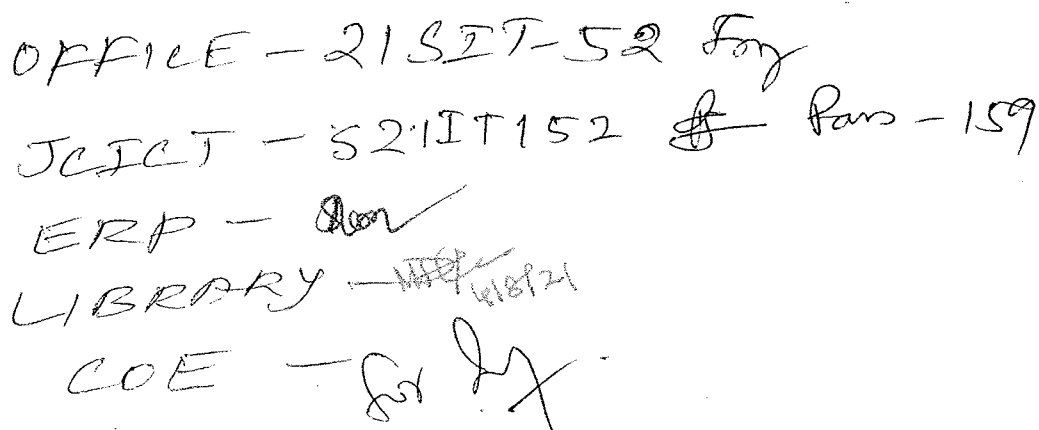 OFFICE - 21SIT-52
JCICT - S21IT152 Pass - 159
ERP -
LIBRARY - 4/8/21
COE - for